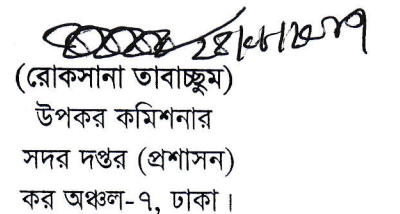 (রোকসানা তাবাচ্ছুম)
উপকর কমিশনার
সদর দপ্তর (প্রশাসন)
কর অঞ্চল-৭, ঢাকা।